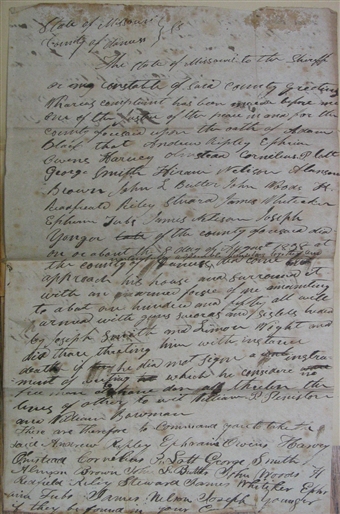 State of Missouri
County of Daviess } SS
The State of Missouri to the Sheriff
or any constable of said County greeting
Whereas complaint has been made before me
one of the of the peace in and for the
county foresaid upon the oath of Adam
Black that Andrew Ripley Ephrim
Owens Harvey Olmstead Cornelius P Lott
George Smith Hiram Nelson Alanson
Brown John L Butler John Woods H
Redfield Riley Stuard James Whitaker
Ephrim Tubs James Nelson Joseph
Yonger late of the county foresaid did
on or about the 8 day of August 1838 at
the county of Daviess
approach his house and surround it
with an armed force of men amounting
to about one hundred and fifty all well
armed with guns swords and
by Joseph Smith and Limon Wight and
did thare thretten him with instance
death if he did not sign a
ment of writing which he considers
free man thretten the
lives of other to wit William P Peniston
and William Bowman
these are therefor to Command you to take the
said Andrew Ripley Ephraim Owens Harvey
Omstead Cornelius P. Lott George Smith
Brown John L Butler John Woods H
Redfield Riley Steward James Whitiker Ephr
aim Tubs James Nelson Joseph Younger
if they be found in your